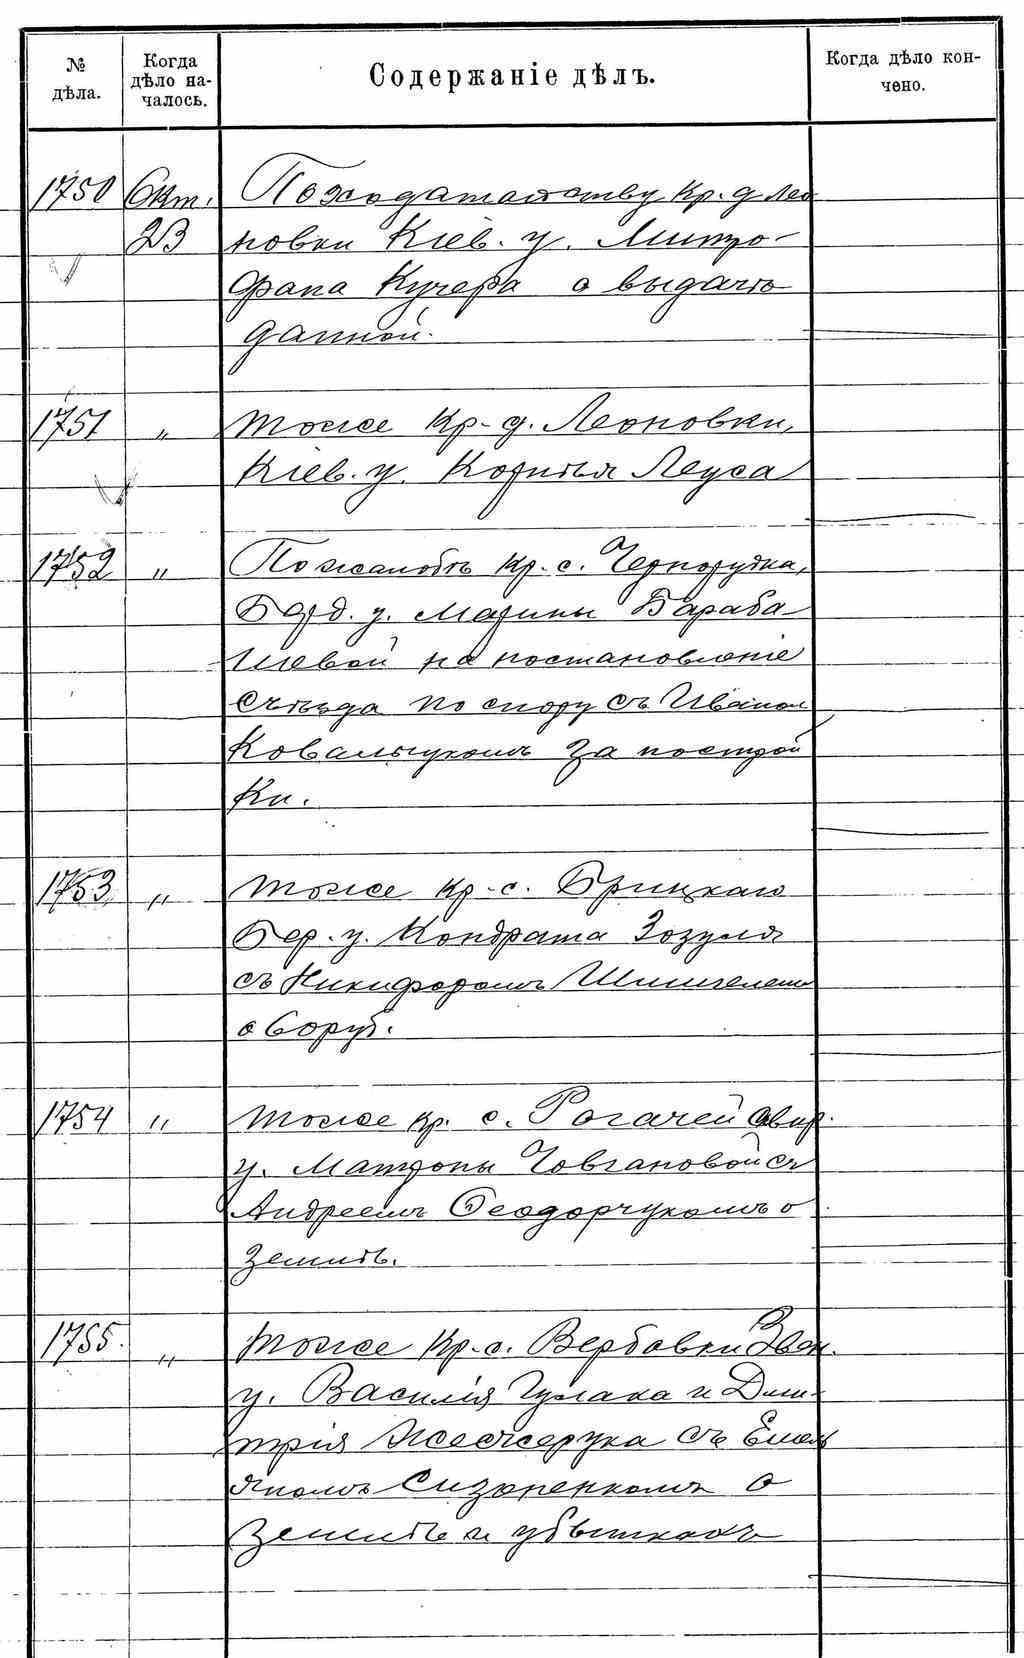 № дѣла.
Когда дѣло на-
чалось.
Содержаніе дѣлъ.
Когда дѣло кон-
чено.
1750 Окт. По ходатайству кр. д. Лео
23 новки Кіев. у. Митро-
фана Кучера о выдачѣ
данной.
1751 " тоже кр. д. Леоновки,
Кіев. у. Корнѣя Леуса
1752 " По жалобѣ кр. с. Чернорудка,
Берд. у. Марины Бараба
шевой на постановленіе
съѣзда по спору съ Иваном
Ковальчукомъ за построй
ки.
1753 " тоже кр. с. Брицкаго
Бер. у. Кондрата Зозуля
съ Никифоромъ
о 6 оруб.
1754 " тоже кр. с. Рогачей Сквир.
у. Матроны Човгановой съ
Андреемъ Феодорчукомъ о
землѣ.
1755. " тоже кр. с. Вербовки Звен.
у. Василія Гулака и Дми-
трія съ Емель
яномъ Сизоненкомъ о
землѣ и убыткахъ